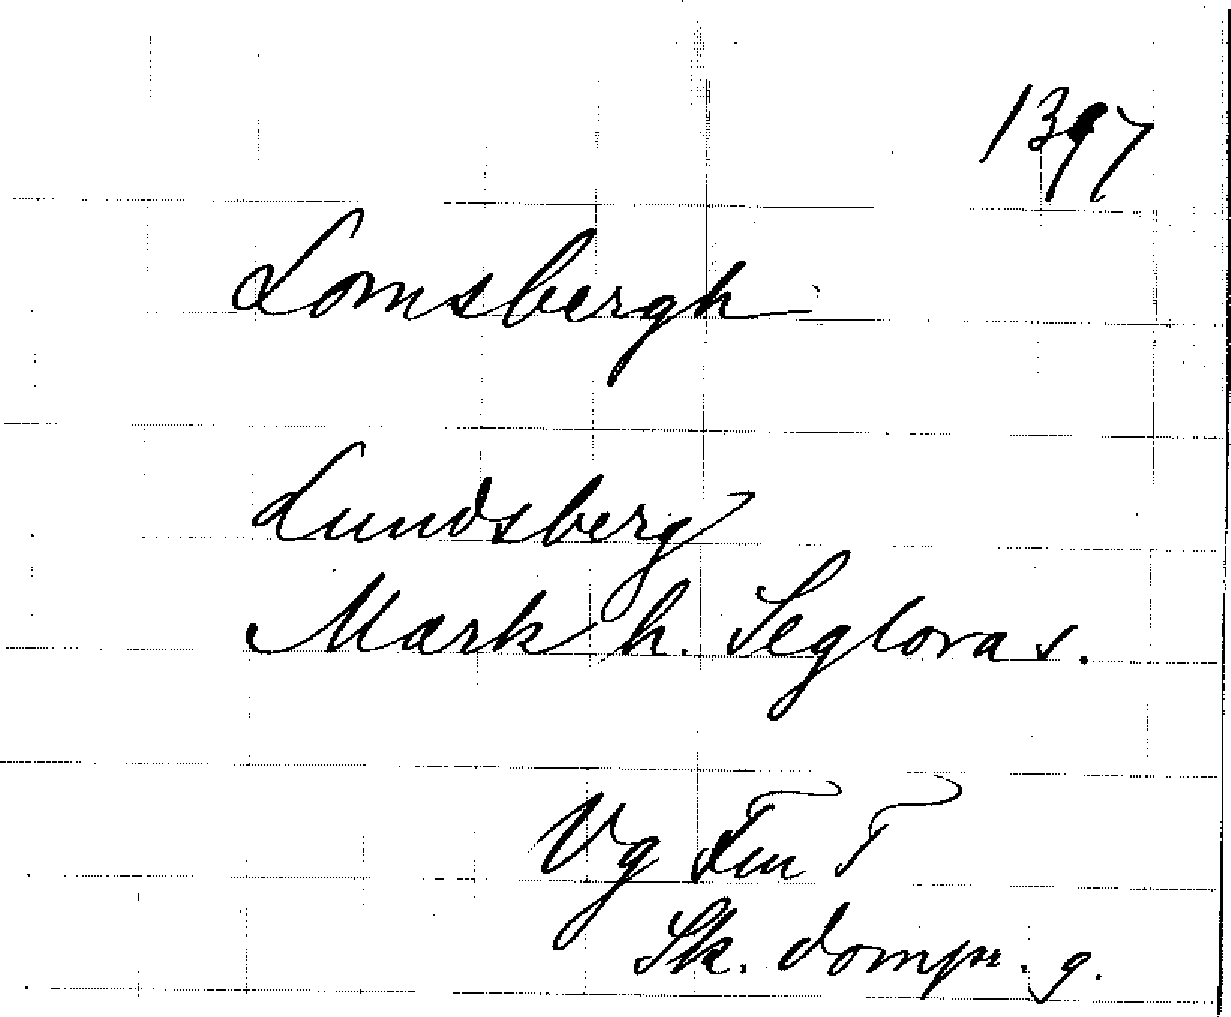 1397
Lomsbergh
Lundsberg
Mark h. Seglora s.
Vg Fm T
Sk. domp. g.